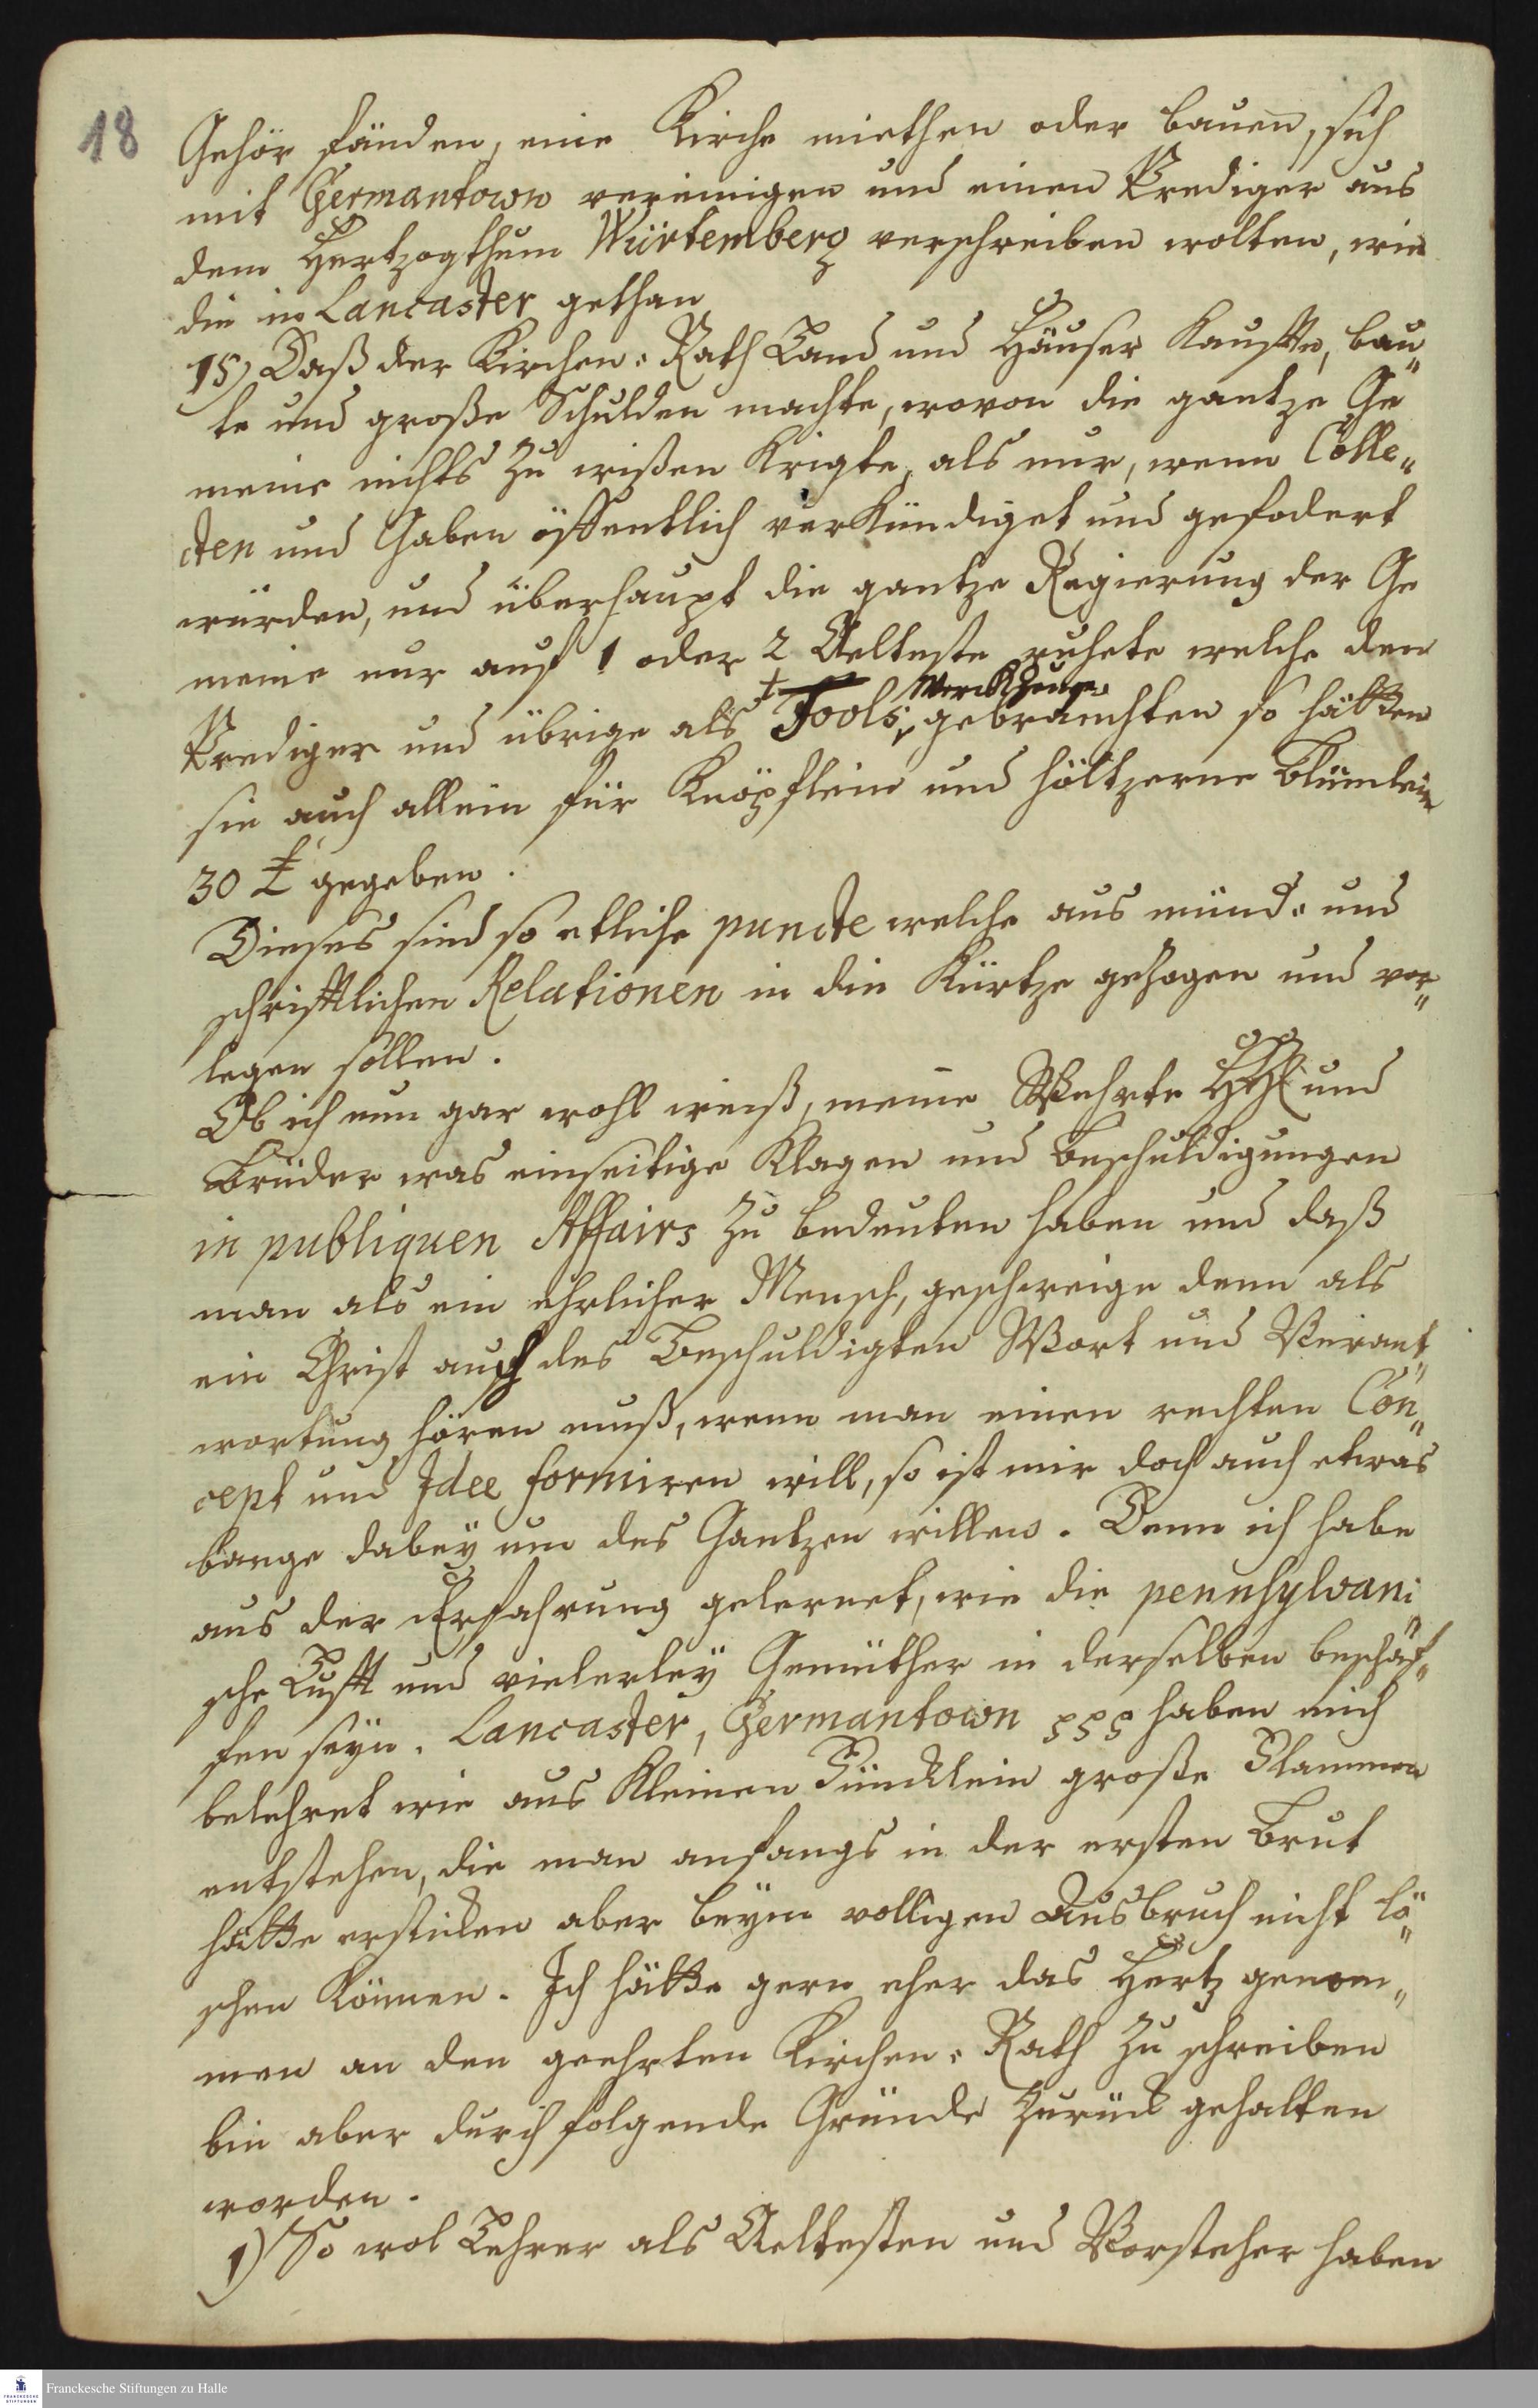 18
Gehör fänden, eine Kirche miethen oder bauen, sich
mit Germantown vereinigen und einen Prediger aus
dem Hertzogthum Würtemberg verschreiben wolten, wie
die in Lancaster gethan
15) Daß der Kirchen-Rath Land und Häuser kauffte, bau„
te und große Schulden machte, wovon die gantze Ge
meine nichts zu wißen krigte, als nur, wenn Colle„
cten und Gaben öffentlich verkündiget und gefodert
würden, und überhaupt die gantze Regierung der Ge
meine nur auf 1 oder 2 Aelteste ruhete welche den
Werckzeuge
Prediger und übrige als Tools, gebrauchten so hätten
sie auch allein für Knöpflein und höltzerne Blümlein
30 £ gegeben.
Dieses sind so etliche puncte welche aus münd- und
schrifftlichen Relationen in die Kürtze gezogen und vor„
legen sollen.
Ob ich nun gar wohl weiß, meine Wehrte HH und
Brüder was einseitige Klagen und Beschuldigungen
in publiquen Affairs zu bedeuten haben und daß
man als ein ehrlicher Mensch, geschweige denn als
ein Christ auch des Beschuldigten Wort und Verant„
wortung hören muß, wenn man einen rechten Con„
cept und Idee formiren will, so ist mir doch auch etwas
bange dabey um des Gantzen willen. Denn ich habe
aus der Erfahrung gelernet, wie die pennsylvani
sche Lufft und vielerley Gemüther in derselben beschaf„
fen seyn. Lancaster, Germantown ppp haben mich
belehret wie aus kleinen Füncklein große Flammen
entstehen, die man anfangs in der ersten Brut
hätte ersticken aber beym volligen Ausbruch nicht lö„
schen können. Ich hätte gern eher das Hertz genom„
men an den geehrten Kirchen-Rath zu schreiben
bin aber durch folgende Gründe zurück gehalten
worden.
1) So wol Lehrer als Aeltesten und Vorsteher haben
Franckesche Stiftungen zu Halle